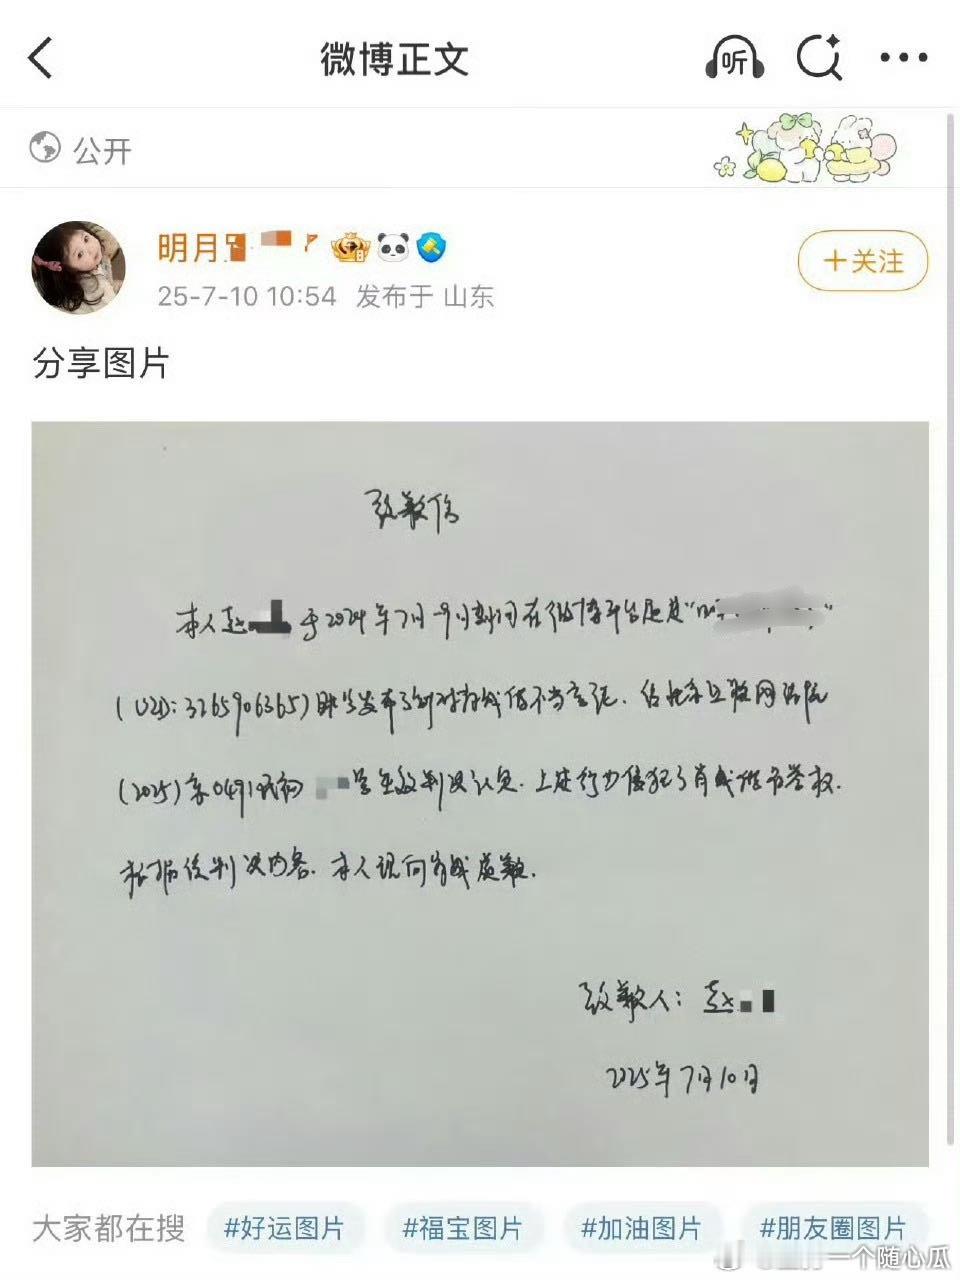 微博正文
听
公开
明月
25-7-10 10:54 发布于 山东
+关注
分享图片
致歉信
本人赵 于2024年7月-9月期间在微博平台通过“
(UID: 3265906365)账号发布了针对肖战的不当言论. 经北京互联网法院
(2025)京0491民初 号生效判决认定. 上述行为侵犯了肖战的名誉权.
根据该判决内容. 本人现向肖战致歉.
致歉人: 赵
2025年7月10日
大家都在搜 #好运图片 #福宝图片 #加油图片 #朋友圈图片
一个随心瓜